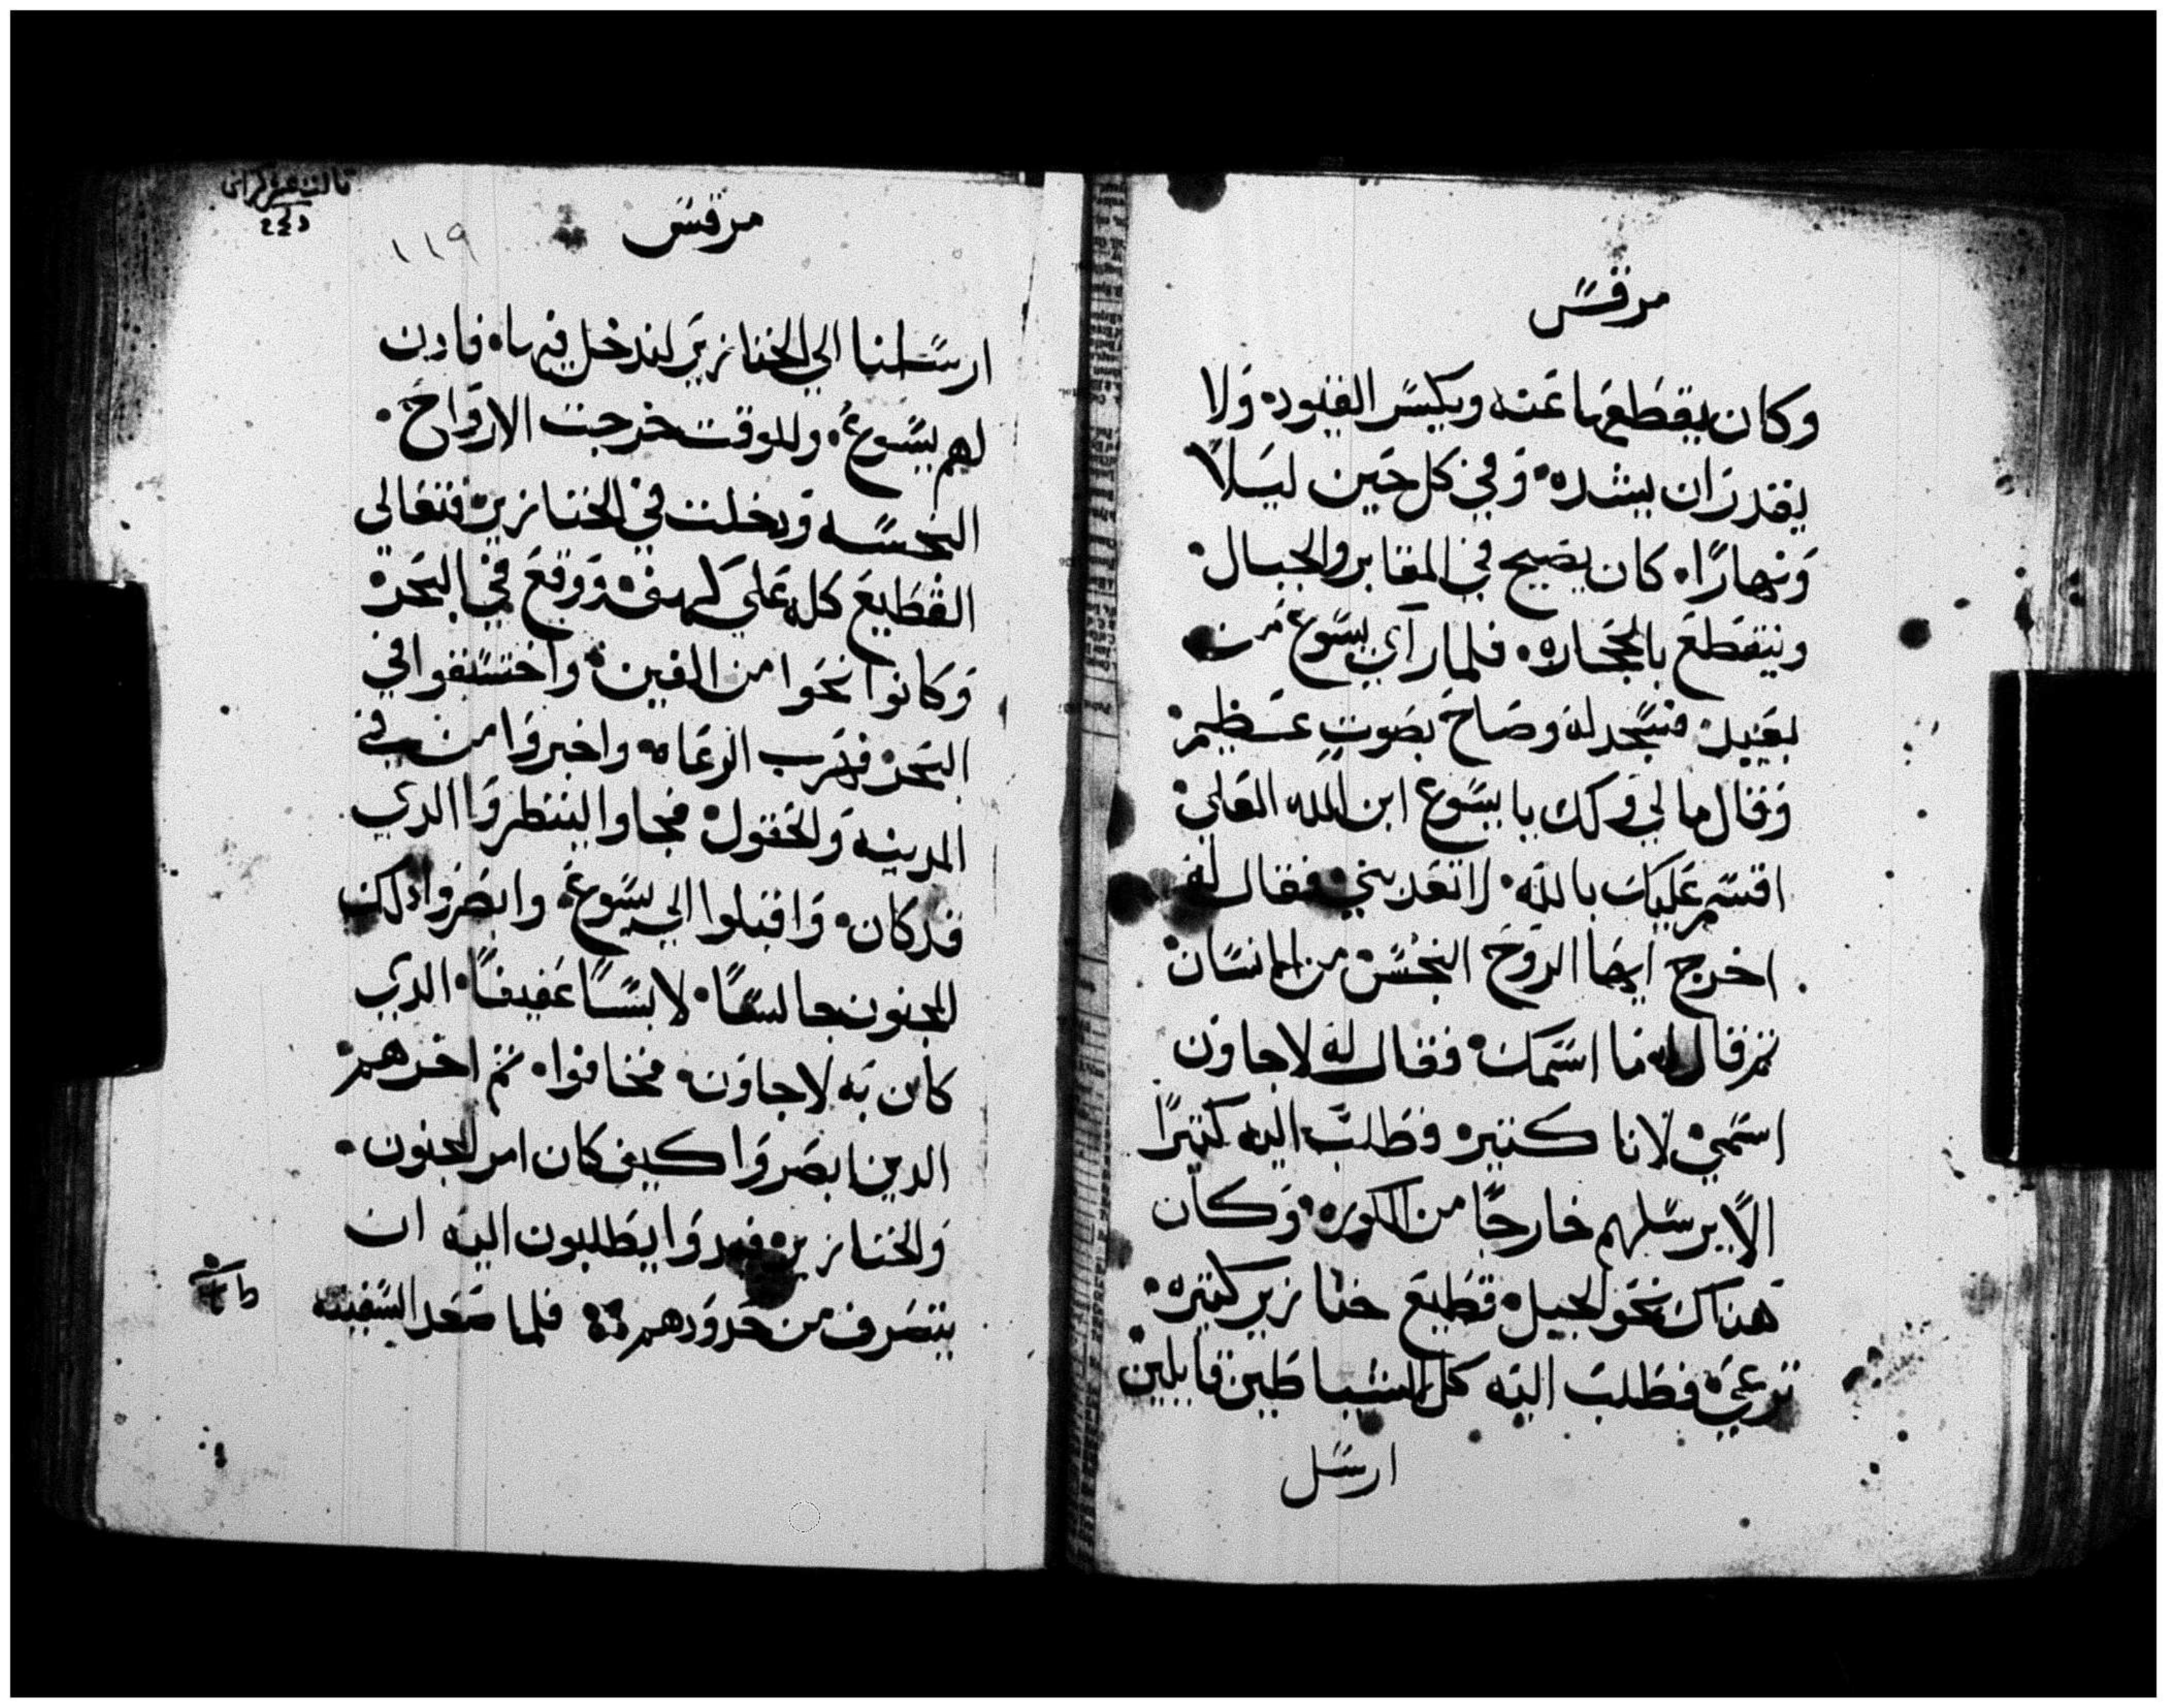 مرقس
وكان يقطعها عنه ويكسر القيود ولا
يقدر ان يشده وفي كل حين ليلاً
ونهارًا كان يصيح في المقابر والجبال
ويتقطع بالحجاره فلما رآي يسوع من
بعيد فسجد له وصاح بصوتٍ عظيم
وقال ما لي ولك يا يسوع ابن الله العلي
اقسم عليك بالله لا تعدبني فقال له
اخرج ايها الروح النجس من الانسان
ثم قال له ما اسمك فقال له لاجاون
اسمي لانا كثيره وطلب اليه كثيرًا
الا يرسلهم خارجًا من الكوره وكان
هناك نحو الجبل قطيع خنازير كثيره
ترعي فطلب اليه كل الشياطين قايلين
ارسل
مرقس
١١٩
ارسلنا الي الخنازير لندخل فيها فادن
لهم يسوع وللوقت خرجت الارواح
النجسه ودخلت في الخنازير فتعالي
القطيع كله علي كهف ووقع في البحر
وكانوا نحوا من الفين واختنقوا في
البحر فهرب الرعاه واخبروا من في
المدينه والحقول فجاوا لينظروا الدي
قد كان واقبلوا الي يسوع وابصروا دلك
المجنون جالسًا لابسًا عفيفًا الدي
كان به لاجاون فخافوا ثم اخرهم
الدين ابصروا كيف كان امر المجنون
والخنازير فبدوا يطلبون اليه ان
ينصرف من حدودهم فلما صعد السفينه